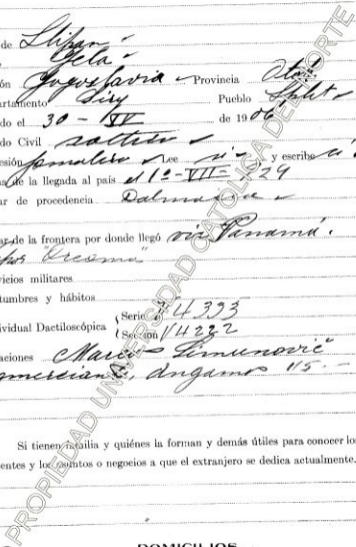 de Stipan
Jela
ón Yugoslavia Provincia
artamento Pueblo Split
do el 30 - IV de 1906
do Civil soltero
esión jornalero Lee si y escribe si
a de la llegada al país el 1º - VII - 929
ar de procedencia Dalmacia
ar de la frontera por donde llegó via Panamá.
"Orcoma"
vicios militares
tumbres y hábitos
ividual Dactiloscópica Serie 4333
Sección 4222
aciones Marcos Simunović
omerciante, Angamos 115.-
Si tienen familia y quiénes la forman y demás útiles para conocer los
entes y los asuntos o negocios a que el extranjero se dedica actualmente.
DOMICILIOS
PROPIEDAD UNIVERSIDAD CATÓLICA DEL NORTE